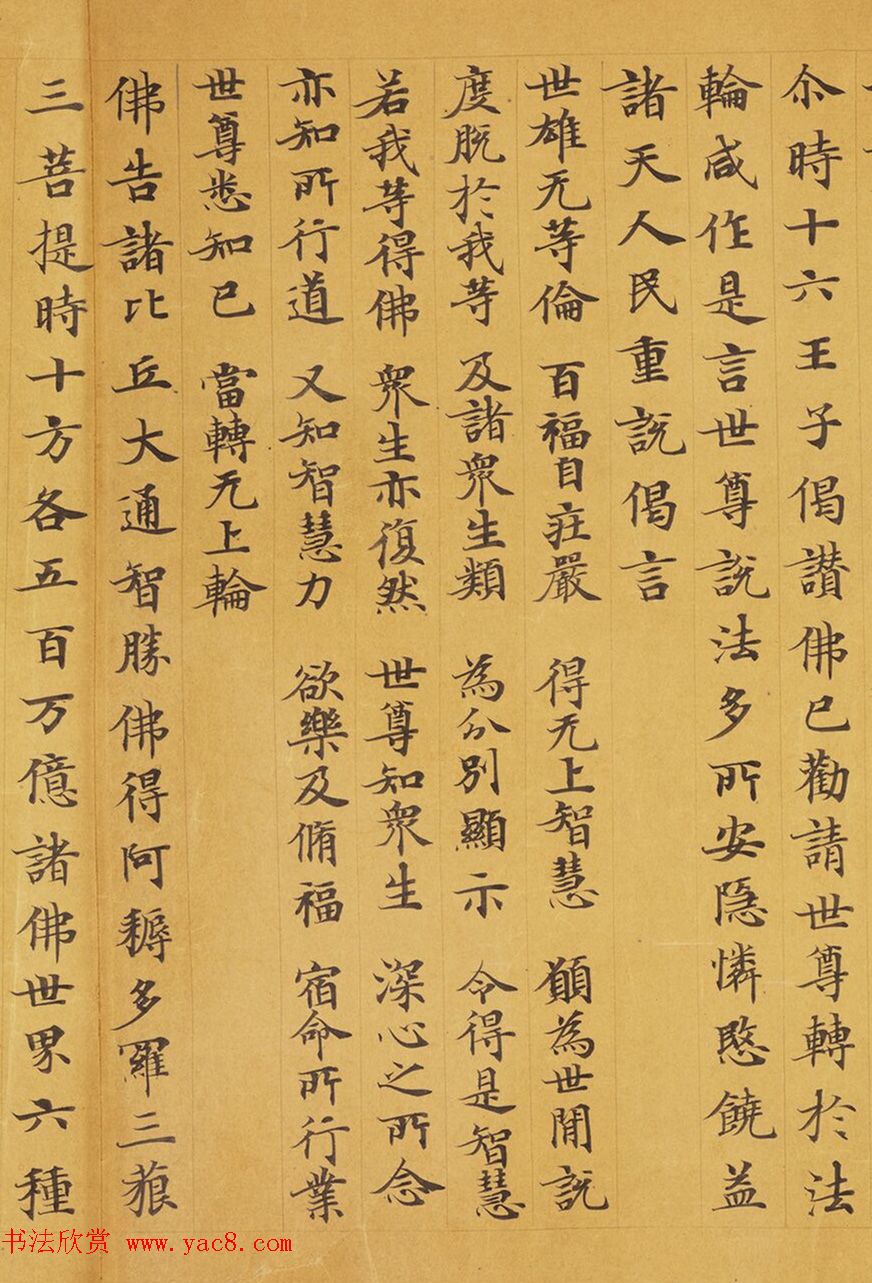 尒時十六王子偈讃佛已勸請世尊轉於法
輪咸作是言世尊説法多所安隱憐愍饒益
諸天人民重説偈言
世雄无等倫 百福自莊嚴 得无上智慧 願為世間説
度脱於我等 及諸衆生類 為分別顯示 令得是智慧
若我等得佛 衆生亦復然 世尊知衆生 深心之所念
亦知所行道 又知智慧力 欲樂及脩福 宿命所行業
世尊悉知已 當轉无上輪
佛告諸比丘大通智勝佛得阿耨多羅三藐
三菩提時十方各五百万億諸佛世界六種
书法欣赏 www.yac8.com